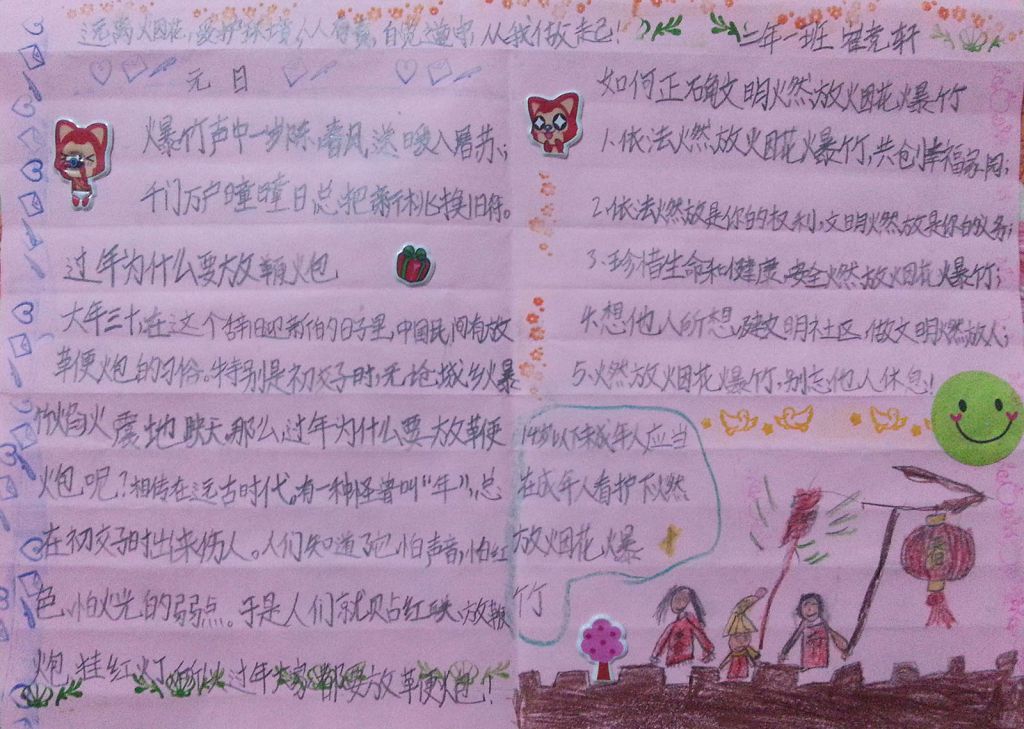 远离烟花,爱护环境,人人有责,自觉遵守,从我做起!
二年一班 崔竞轩
元日
爆竹声中一岁除,春风送暖入屠苏;
千门万户曈曈日总把新桃换旧符。
过年为什么要放鞭火包
大年三十,在这个辞旧迎新的日子里,中国民间有放
革便火包的习俗。特别是初交子时,无论城乡火暴
竹焰火震地映天,那么过年为什么要放革便
火包呢?相传在远古时代,有一种怪兽叫“年”,总
在初交子时出来伤人。人们知道了它怕声音,怕红
色,怕火光的弱点。于是人们就贴红联、放鞭
炮,挂红灯,所以过年大家都要放革便火包!
如何正确文明火然放火因花火暴竹
1.依法火然放火因花火暴竹,共创幸福家园;
2.依法燃放是你的权利,文明燃放是你的义务;
3.珍惜生命和健康,安全火然放火因花火暴竹;
4.想他人所想,建文明社区,做文明燃放人;
5.火然放火因花火暴竹,别忘他人休息!
14岁以下未成年人应当
在成年人看护下火然
放火因花火暴
竹
春